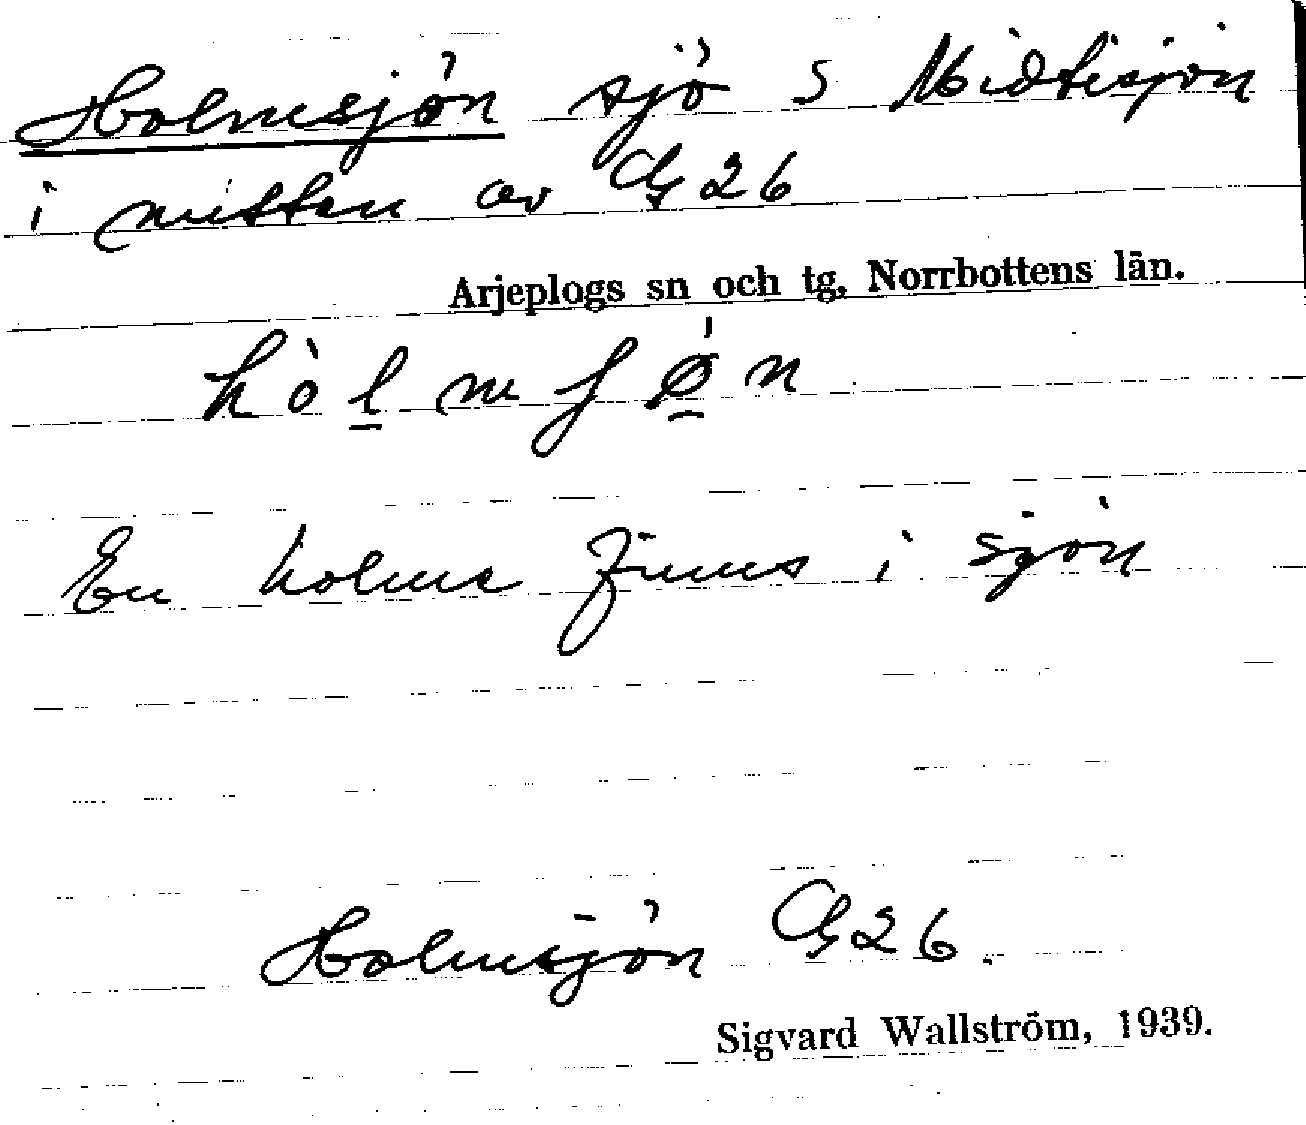 Holmsjön sjö S Midtisjön
i mitten av G 26
Arjeplogs sn och tg, Norrbottens län.
hòl̲mʃø̲̍n
En holme finns i sjön
Holmsjön G 26
Sigvard Wallström, 1939.